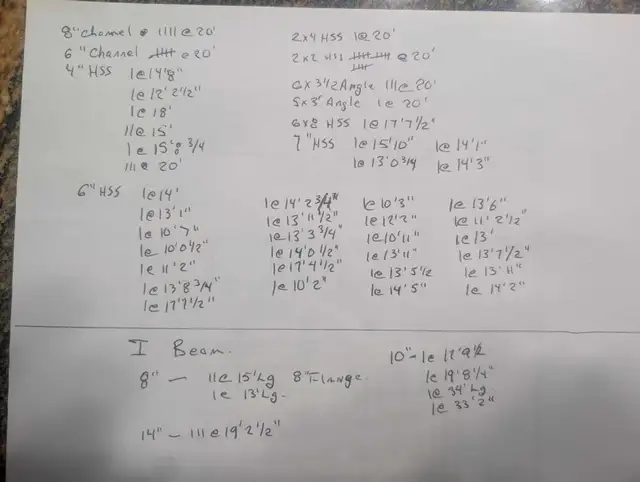 8" channel 1111 @ 20'
6" Channel 𝍸 @ 20'
4" HSS 1@14'8"
1@12' 2 1/2"
1@ 18'
11@ 15'
1@ 15' 8 3/4
111@ 20'
2x4 HSS 1@20'
2x2 HSS 𝍸 𝍸 𝍸 @ 20'
6x3 1/2 Angle 111@ 20'
5x3" Angle 1@ 20'
6x8 HSS 1@17'7 1/2"
7" HSS 1@15'10" 1@14'1"
1@ 13'0 3/4 1@14'3"
6" HSS 1@14'
1@13'1"
1@ 10'7"
1@ 10'0 1/2"
1@ 11'2"
1@13'8 3/4"
1@17'7 1/2"
1@14'2 3/4"
1@13'11 1/2"
1@13'3 3/4"
1@14'0 1/2"
1@17'4 1/2"
1@10'2"
1@10'3"
1@12'2"
1@10'11"
1@13'11"
1@ 13'5 1/2
1@ 14'5"
1@13'6"
1@ 11'2 1/2"
1@ 13'
1@ 13'7 1/2"
1@ 13'11"
1@ 14'2"
I Beam.
8" — 11@ 15'Lg 8"Flange.
1@ 13'Lg.
14" — 111@19'2 1/2"
10" - 1@ 17'9 1/2
1@ 19'8 1/4"
1@ 34' Lg.
1@ 33'2"